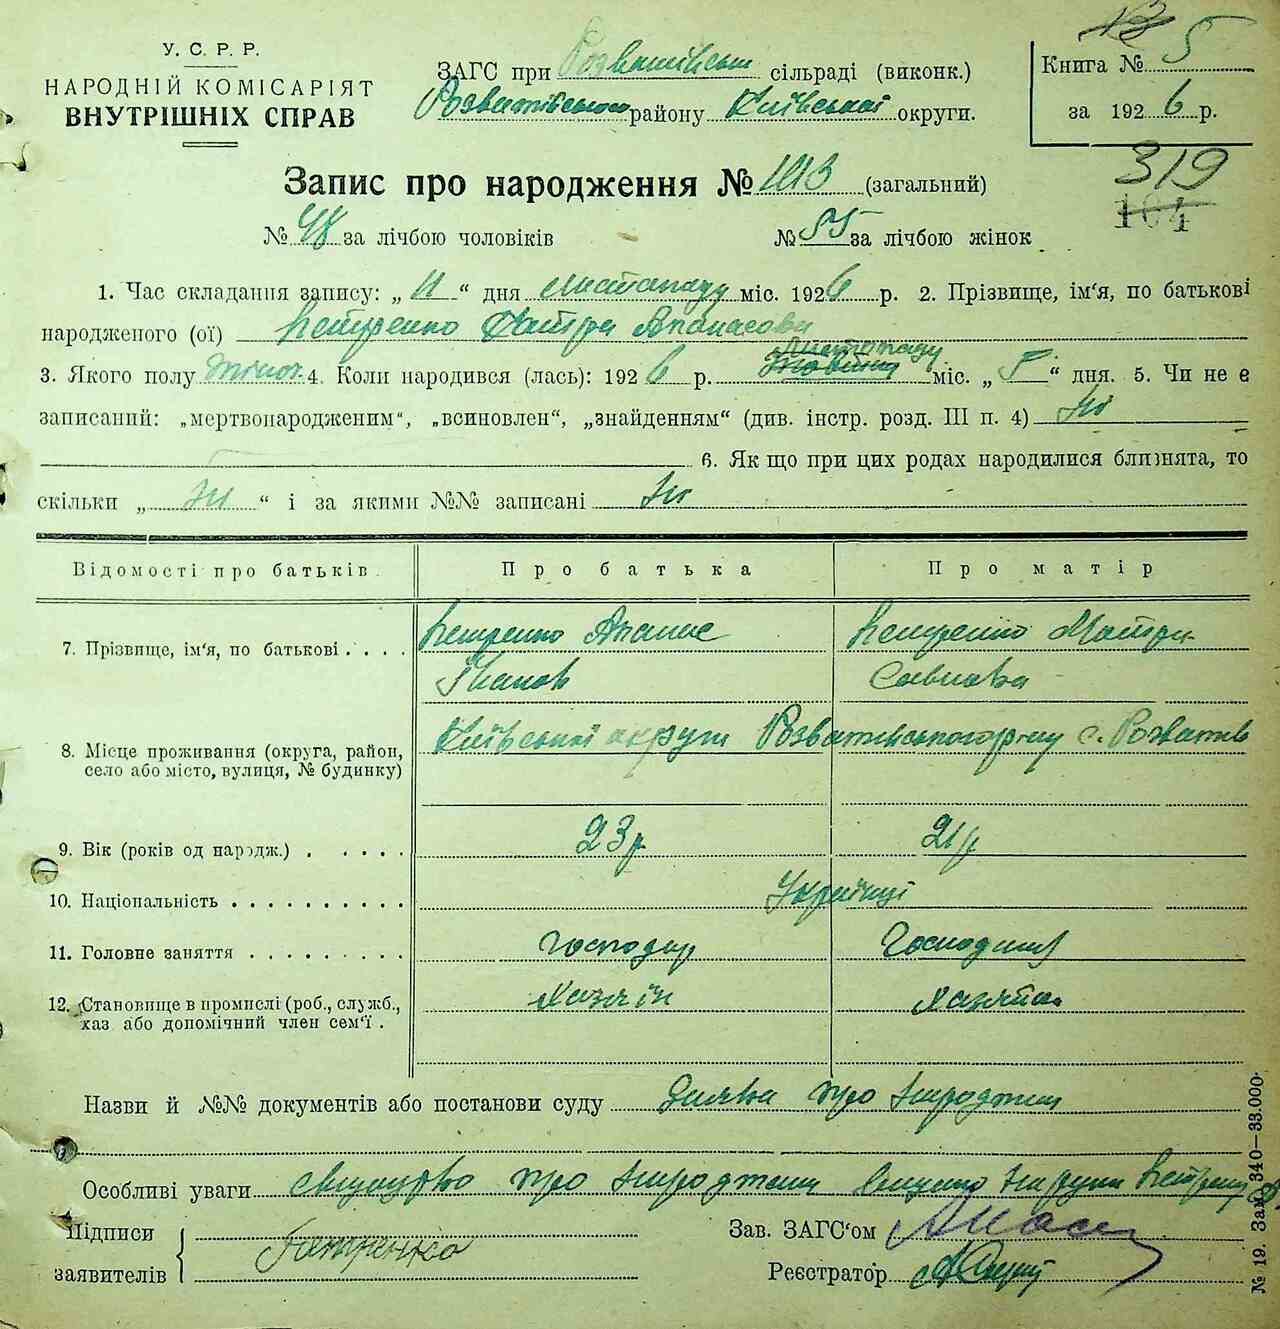 У. С. Р. Р.
НАРОДНІЙ КОМІСАРІЯТ
ВНУТРІШНІХ СПРАВ
ЗАГС при сільраді (виконк.)
Розватівського району Київської округи.
Книга № 5
за 1926 р.
319
164
Запис про народження № 103 (загальний)
№ 48 за лічбою чоловіків № 55 за лічбою жінок
1. Час складання запису: „11“ дня листопаду міс. 1926 р. 2. Прізвище, ім‘я, по батькові
народженого (ої) Петренко Апанасова
3. Якого полу жіноч. 4. Коли народився (лась): 1926 р. листопаду міс. „5“ дня. 5. Чи не є
записаний: „мертвонародженим“, „всиновлен“, „знайденням“ (див. інстр. розд. III п. 4) Ні
6. Як що при цих родах народилися близнята, то
скільки „ Ні “ і за якими №№ записані Ні
Відомості про батьків. Про батька Про матір
7. Прізвище, ім‘я, по батькові . . . . Петренко Апанас Петренко Мотря
Іванов Савкова
8. Місце проживання (округа, район, село або місто, вулиця, № будинку) Київської округи Розватівського р-ну с. Розватів
9. Вік (років од народж.) . . . . . 23 р. 21 р.
10. Національність . . . . . . . . . . Українці
11. Головне заняття . . . . . . . . . Господар Господиня
12. Становище в промислі (роб., служб., хаз або допомічний член сем‘ї . Хазяїн Хазяйка
Назви й №№ документів або постанови суду Заява про народження
Особливі уваги свідоцтво про народження видано на руки Петренку
Підписи
заявителів Петренко
Зав. ЗАГС‘ом
Реєстратор
№ 19. Зак. 340—33.000.